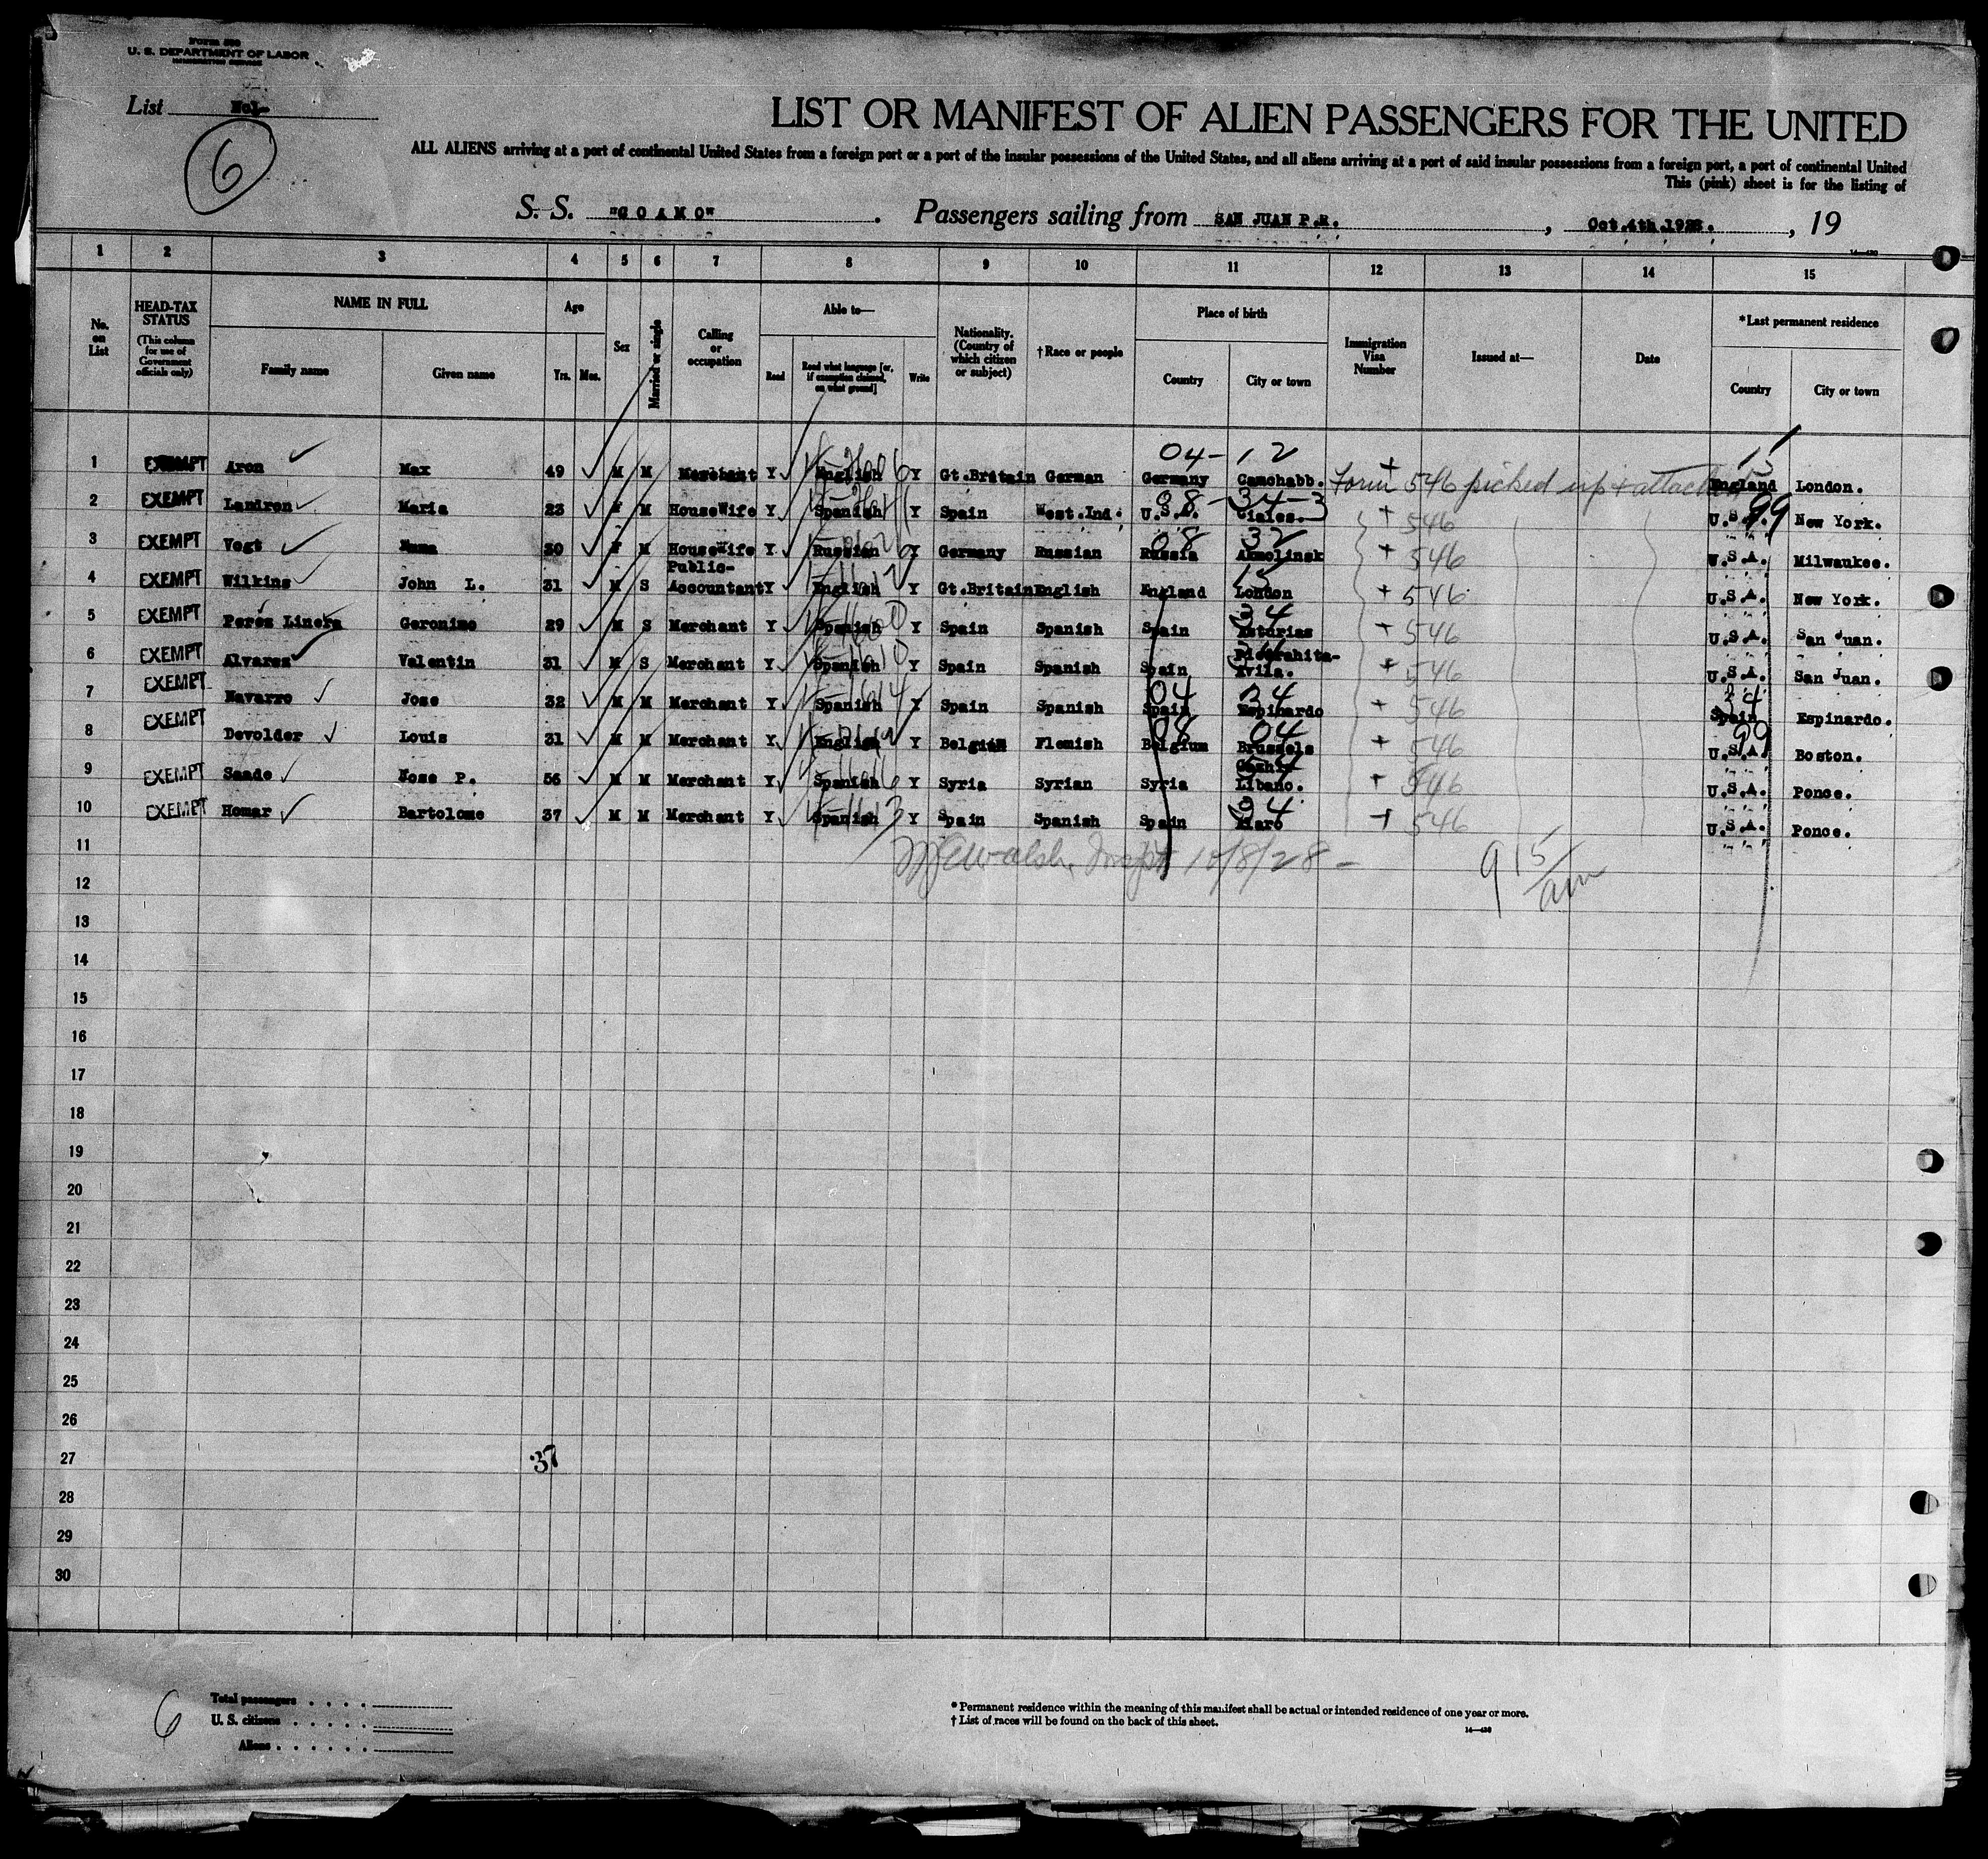 Form 500
U. S. DEPARTMENT OF LABOR
IMMIGRATION SERVICE
List No1-
6
LIST OR MANIFEST OF ALIEN PASSENGERS FOR THE UNITED
ALL ALIENS arriving at a port of continental United States from a foreign port or a port of the insular possessions of the United States, and all aliens arriving at a port of said insular possessions from a foreign port, a port of continental United
This (pink) sheet is for the listing of
S. S. "COAMO" . Passengers sailing from SAN JUAN P.R. , Oct.4th.1928. , 19
1 2 3 4 5 6 7 8 9 10 11 12 13 14 15
No. on List
HEAD-TAX STATUS
(This column for use of Government officials only)
NAME IN FULL
Family name
Given name
Age
Yrs. Mos.
Sex
Married or single
Calling or occupation
Able to—
Read
Read what language [or, if exemption claimed, on what ground]
Write
Nationality. (Country of which citizen or subject)
† Race or people
Place of birth
Country
City or town
Immigration Visa Number
Issued at—
Date
* Last permanent residence
Country
City or town
04- 12 15
1 EXEMPT Aron Max 49 M M Merchant Y English Y Gt.Britain German Germany Camchabb. Form 546 picked up + attached England London.
08-34-3 99
2 EXEMPT Landron Maria 23 F M HouseWife Y Spanish Y Spain West.Ind. U.S.A. Ciales. 546 U.S.A. New York.
08 32
3 EXEMPT Vogt Emma 30 F M Housewife Y Russian Y Germany Russian Russia Akmolinsk 546 U.S.A. Milwaukee.
4 EXEMPT Wilkins John L. 31 M S Public-Accountant Y English Y Gt.Britain English England London 546 U.S.A. New York.
34
5 EXEMPT Perez Linera Geronimo 29 M S Merchant Y Spanish Y Spain Spanish Spain Asturias 546 U.S.A. San Juan.
6 EXEMPT Alvarez Valentin 31 M S Merchant Y Spanish Y Spain Spanish Spain Avila. 546 U.S.A. San Juan.
04 34 34
7 EXEMPT Navarro Jose 32 M M Merchant Y Spanish Y Spain Spanish Spain Espinardo 546 Spain Espinardo.
08 04 99
8 EXEMPT Devolder Louis 31 M M Merchant Y English Y Belgium Flemish Belgium Brussels 546 U.S.A. Boston.
9 EXEMPT Saade Jose P. 56 M M Merchant Y Spanish Y Syria Syrian Syria Libano. 546 U.S.A. Ponce.
34
10 EXEMPT Homar Bartolome 37 M M Merchant Y Spanish Y Spain Spanish Spain 546 U.S.A. Ponce.
11 Walsh, Inspt 10/8/28 - 915/am
12
13
14
15
16
17
18
19
20
21
22
23
24
25
26
27 37
28
29
30
6
Total passengers . . . .
U. S. citizens . . . . .
Aliens . . . . . .
* Permanent residence within the meaning of this manifest shall be actual or intended residence of one year or more.
† List of races will be found on the back of this sheet.
14—430